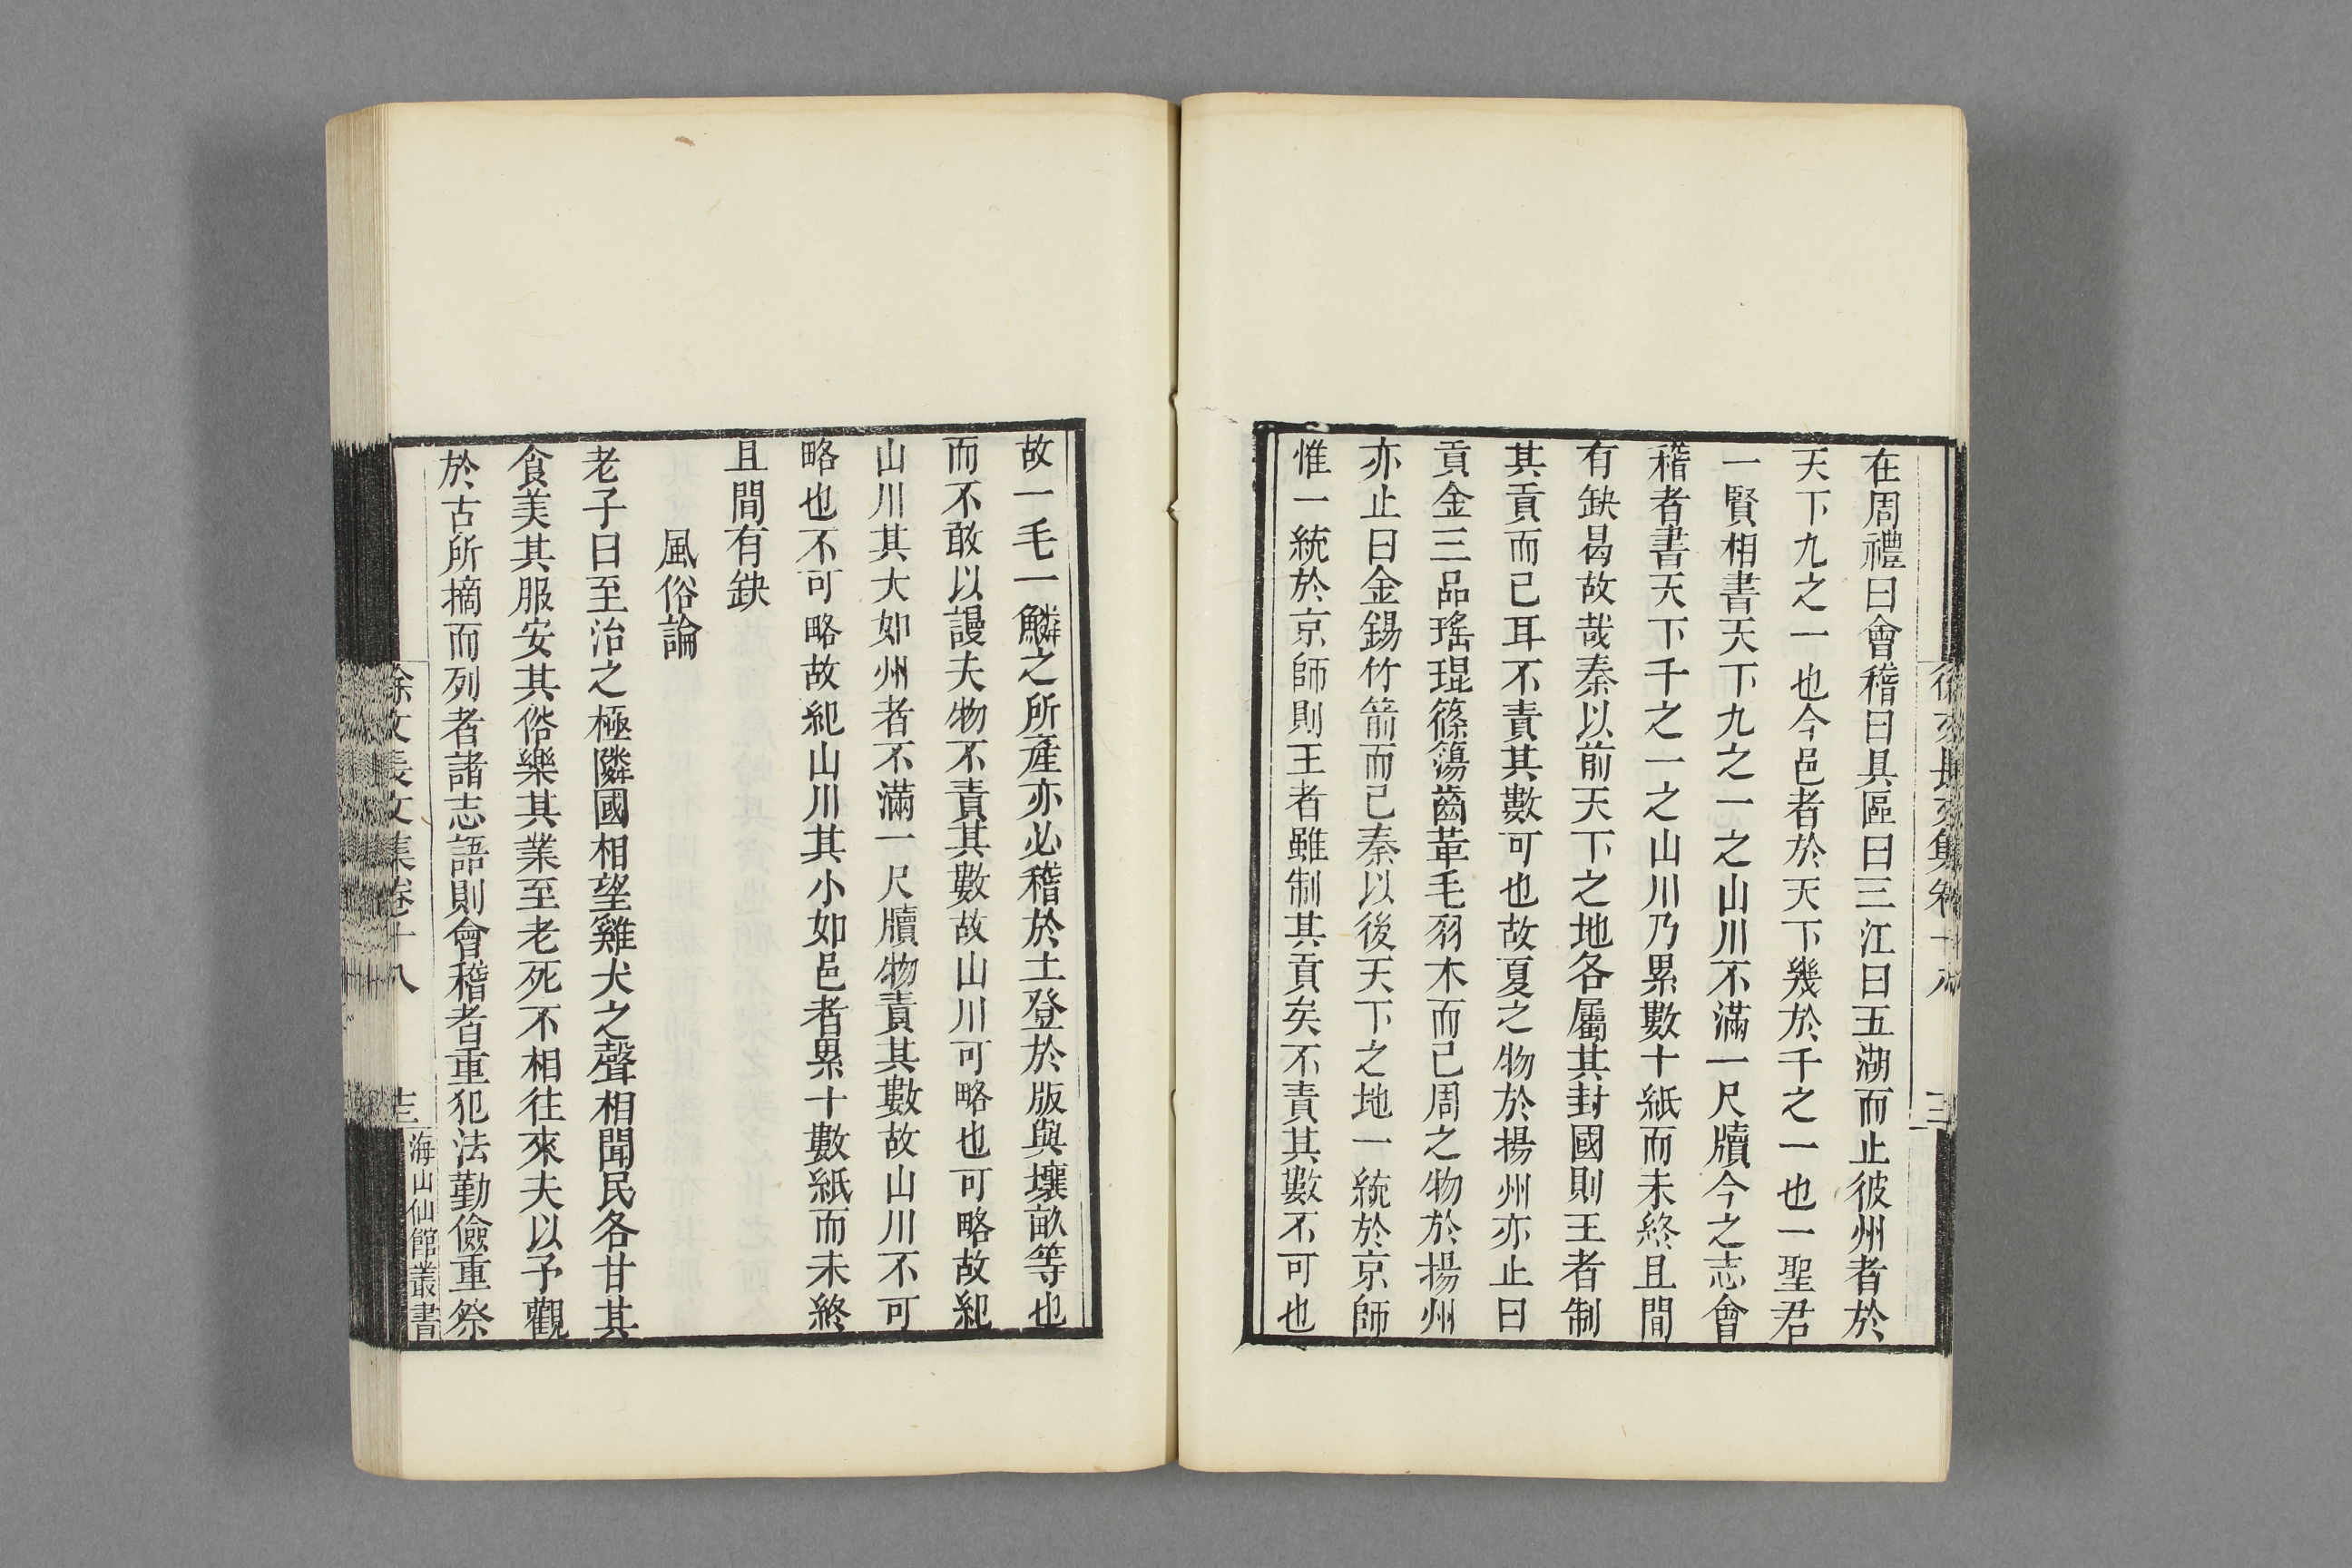 在周禮曰會稽曰具區曰三江曰五湖而止彼州者於
天下九之一也今邑者於天下幾於千之一也一聖君
一賢相書天下九之一之山川不滿一尺牘今之志會
稽者書天下千之一之山川乃累數十紙而未終且間
有缺曷故哉秦以前天下之地各屬其封國則王者制
其貢而已耳不責其數可也故夏之物於揚州亦止曰
貢金三品瑤琨篠簜齒革毛羽木而已周之物於揚州
亦止曰金錫竹箭而已秦以後天下之地一統於京師
惟一統於京師則王者雖制其貢矣不責其數不可也
故一毛一鱗之所產亦必稽於土登於版與壤畝等也
而不敢以謾夫物不責其數故山川可略也可略故紀
山川其大如州者不滿一尺牘物責其數故山川不可
略也不可略故紀山川其小如邑者累十數紙而未終
且間有缺
風俗論
老子曰至治之極隣國相望雞犬之聲相聞民各甘其
食美其服安其俗樂其業至老死不相往來夫以予觀
於古所摘而列者諸志語則會稽者重犯法勤儉重祭
徐文長文集卷十八
海山仙館叢書